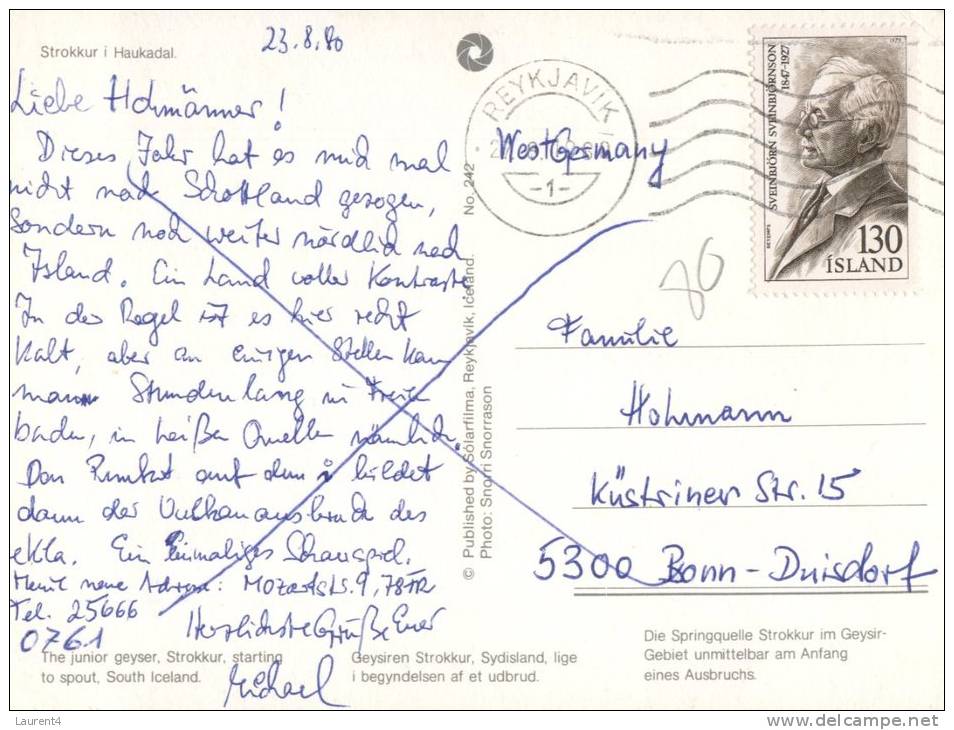 Strokkur i Haukadal.
23.8.80
Liebe Hohmänner!
Dieses Jahr hat es mich mal
nicht nach Schottland gezogen,
Sondern noch weiter nördlich nach
Island. Ein Land voller Kontraste
In der Regel ist es hier recht
Kalt, aber an einigen Stellen kann
man Stundenlang im Freien
baden, in heißen Quellen nämlich.
Den Punkt auf dem i bildet
dann der Vulkanausbruch des
ekla. Ein Einmaliges Schauspiel.
Meine neue Adresse: Mozartstr. 9, 78 FR
Tel. 25666
0761
Herzlichste Grüße Euer
Michael
The junior geyser, Strokkur, starting
to spout, South Iceland.
Geysiren Strokkur, Sydisland, lige
i begyndelsen af et udbrud.
Die Springquelle Strokkur im Geysir-
Gebiet unmittelbar am Anfang
eines Ausbruchs.
© Published by Sólarfilma, Reykjavik, Iceland. No. 242
Photo: Snorri Snorrason
REYKJAVIK
-1-
West Germany
SVEINBJÖRN SVEINBJÖRNSON
1847-1927
1979
130
ÍSLAND
80
Familie
Hohmann
Küstriner Str. 15
5300 Bonn-Duisdorf
Laurent4
delcampe.net